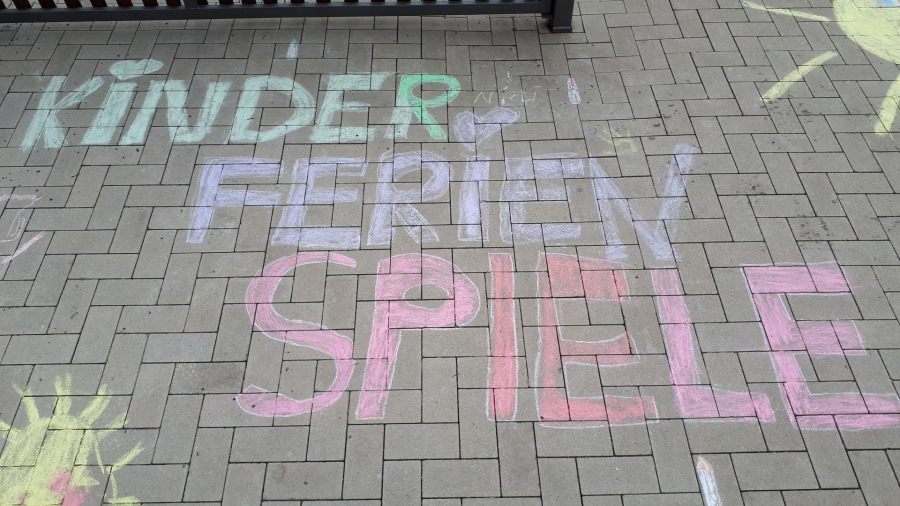 KiNDER
FERiEN
SPIELE